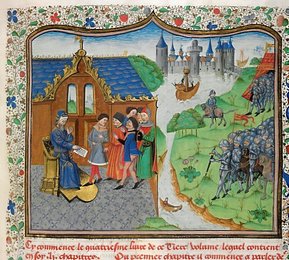 Cy commence le quatriesme liure de ce tiers volume lequel contient
Du premier chapitre il commence a parler de